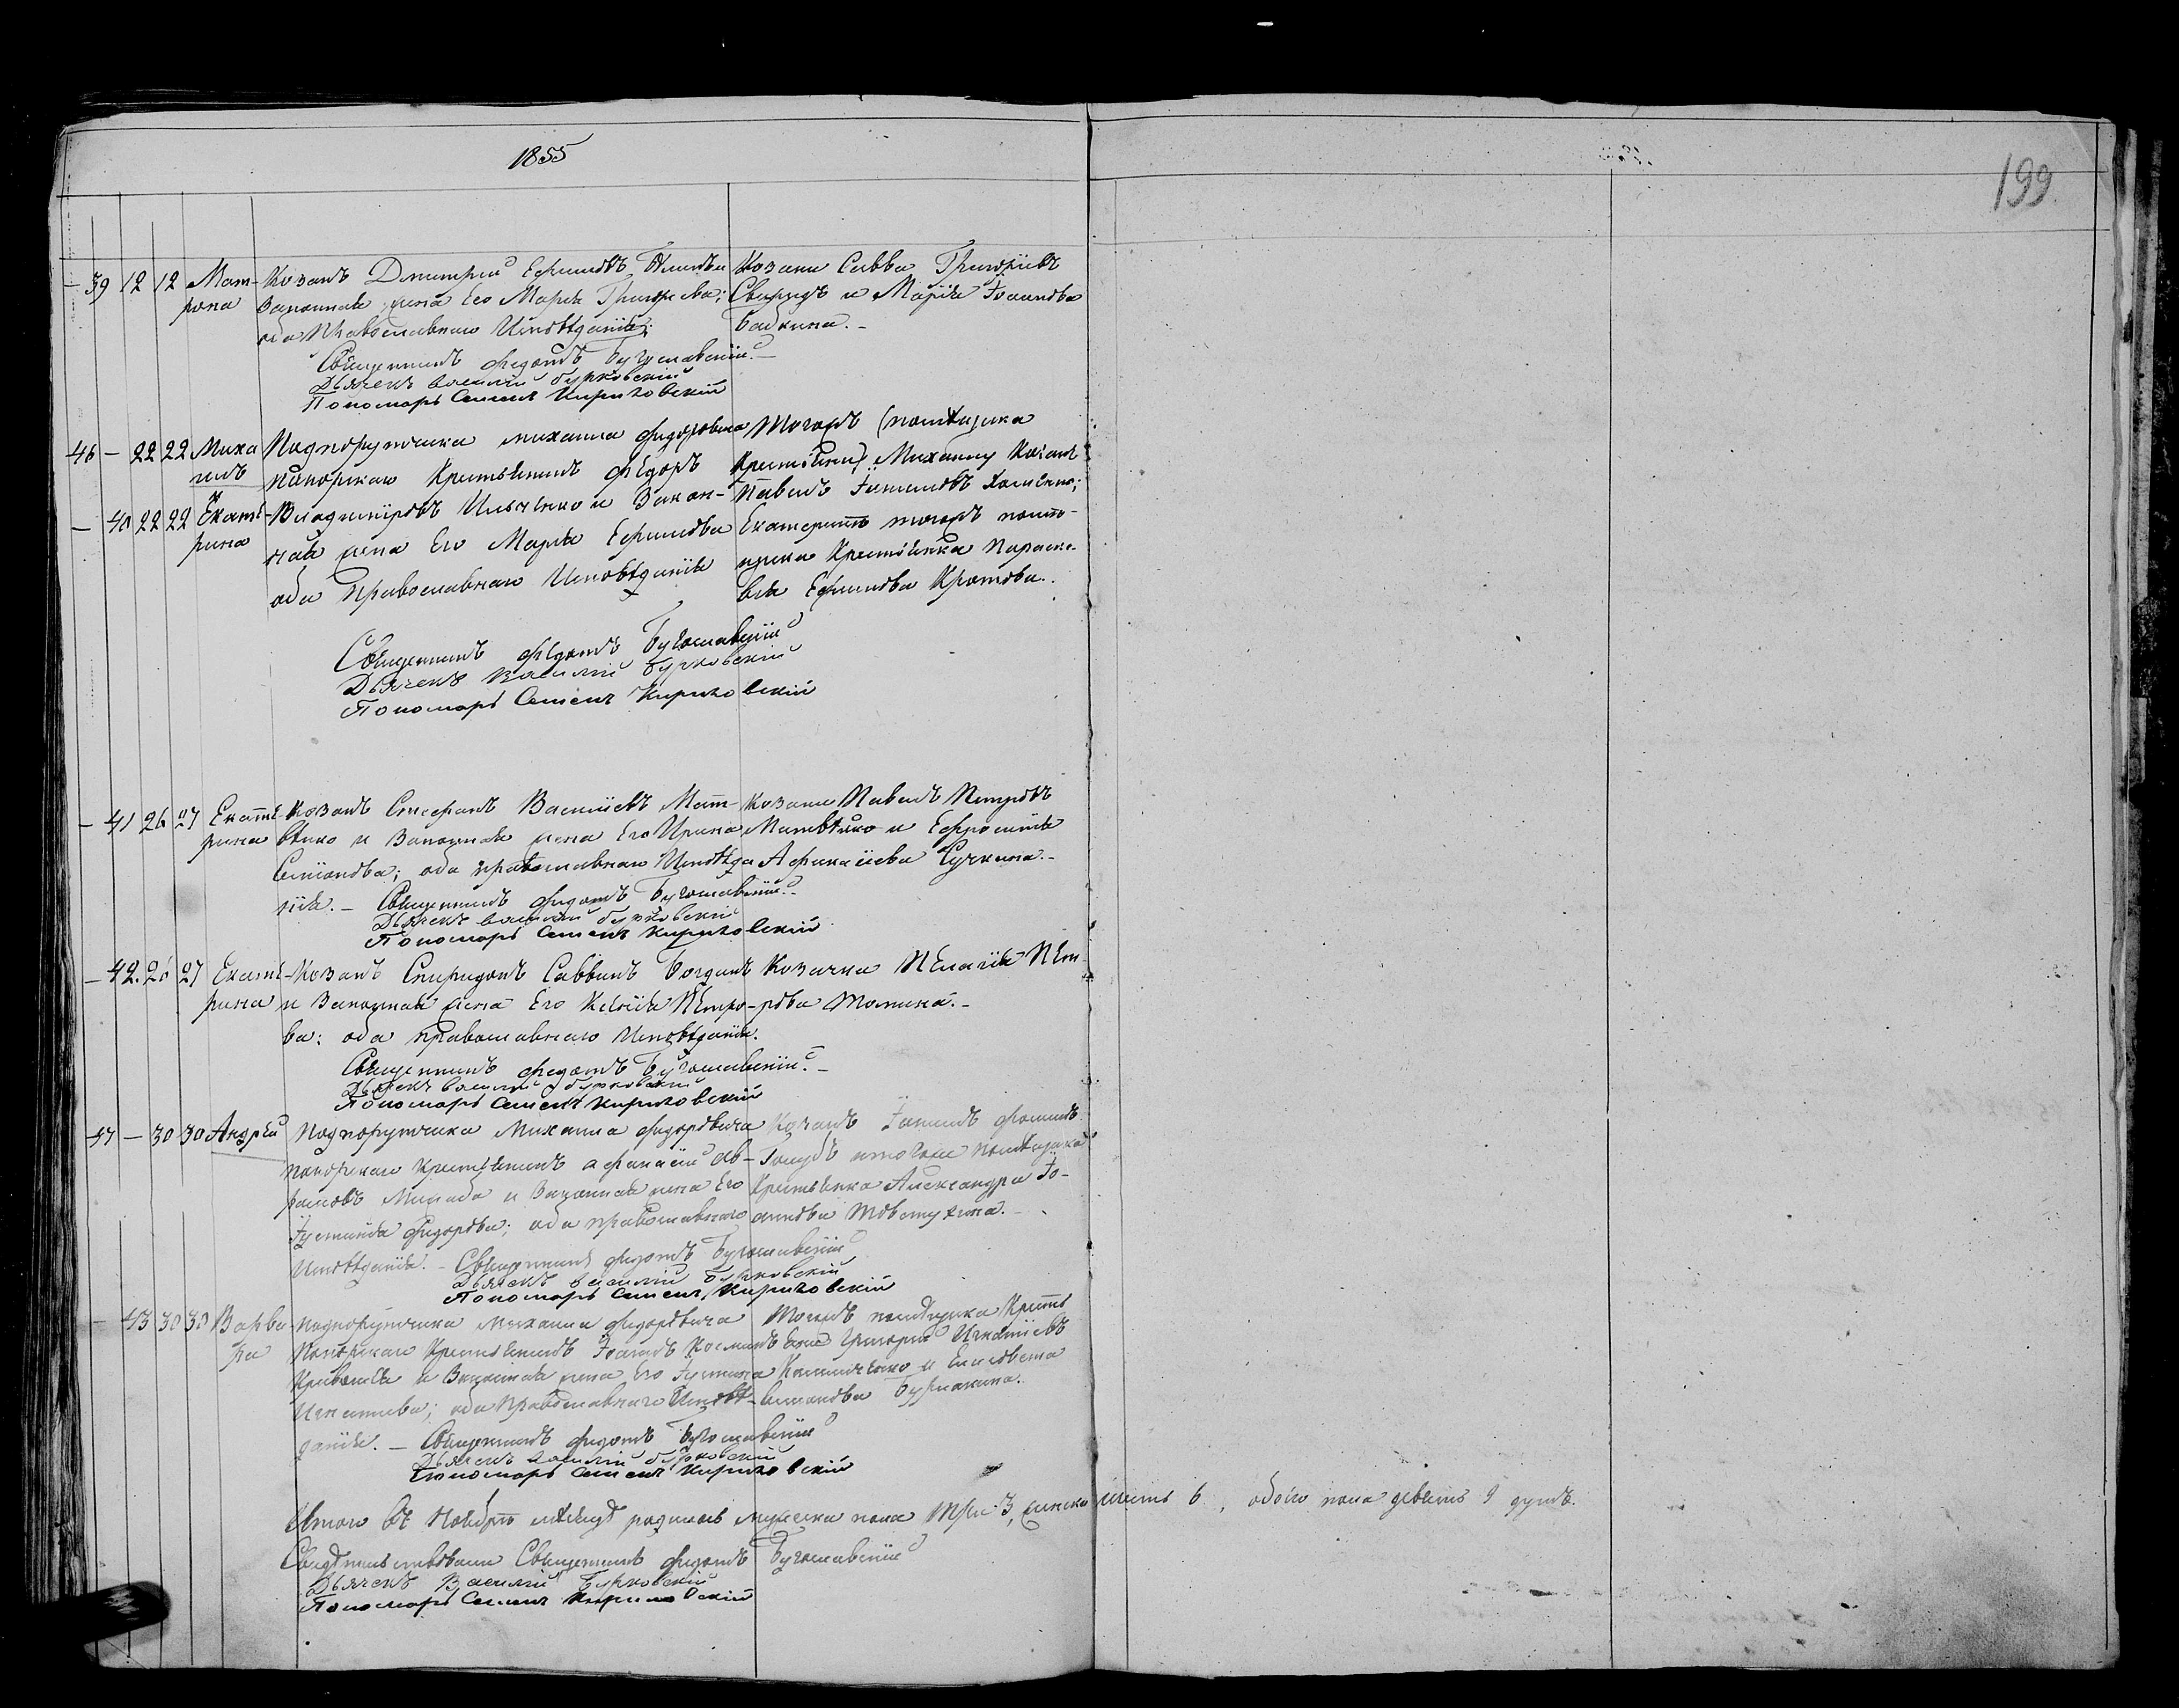 1855
199.
— 39 12 12 Мат-
рона
Козакъ Дмитрій Ефимовъ
Законная жена Его Марія Григорьева;
оба Православнаго Исповѣданія;
Священникъ Федотъ Бугославскій. —
Дьячекъ Василій Бурковскій
Пономарь Семенъ Кириловскій
Козакъ Савва Григоріевъ
Свиридъ и Марія Іоаннова
Бабкина. —
46 — 22 22 Миха
илъ
и
— 40 22 22 Екате-
рина
Подпоручика Михаила Федоровича
Крестьянинъ Федоръ
Владиміровъ Ильченко и Закон-
ная жена Его Марія Ефимова
оба Православнаго Исповѣданія
Священникъ Федотъ Бугославскій
Дьячекъ Василій Бурковскій
Пономарь Семенъ Кириловскій
Тогожъ (помѣщика
Крестьяне) Михаилу Козакъ
Павелъ
Екатеринѣ тогожъ помѣ-
щика Крестьянка Параске-
вія Ефимова Кротова.
— 41 26 27 Екате-
рина
Козакъ Стефанъ Василіевъ Мат-
вѣнко и Законная жена Его Ирина
Симіонова; оба православнаго Исповѣда
нія. — Священникъ Федотъ Бугославскій. —
Дьячекъ Василій Бурковскій
Пономарь Семенъ Кириловскій
Козакъ Павелъ Петровъ
Матвѣнко и Ефросинія
Сучкина. —
— 42. 26 27 Екате-
рина
Козакъ Спиридонъ Саввинъ Богданъ
и Законная жена Его Ксенія Петро-
ва: оба православнаго Исповѣданія.
Священникъ Федотъ Бугославскій. —
Дьячекъ Василій Бурковскій
Пономарь Семенъ Кириловскій
Козачка Пелагія Пет-
рова Томина. —
47 — 30 30 Андрей
Подпоручика Михаила Федоровича
Крестьянинъ Афанасій Ав-
рамовъ и Законная жена Его
Іустинія Федорова; оба православнаго
Исповѣданія. — Священникъ Федотъ Бугославскій
Дьячекъ Василій Бурковскій
Пономарь Семенъ Кириловскій
Козакъ
Голубъ и тогоже помѣщика
Крестьянка Александра Іо-
аннова Товстухина. —
— 43 30 30 Варва
ра
Подпоручика Михаила Федоровича
Крестьянинъ Іоаннъ
и Законная жена Его Іустина
Игнатіева; оба Православнаго Исповѣ-
данія. — Священникъ Федотъ Бугославскій
Дьячекъ Василій Бурковскій
Пономарь Семенъ Кириловскій
Тогожъ помѣщика Кресть
яне Григорій Игнатіевъ
и Елисавета
Симіонова Бурмакина.
Итого въ Ноябрѣ мѣсяцѣ родилось мужеска пола три 3, женска шесть 6, обоего пола девять 9 душъ.
Свидѣтельствовали Священникъ Федотъ Бугославскій
Дьячекъ Василій Бурковскій
Пономарь Семенъ Кириловскій